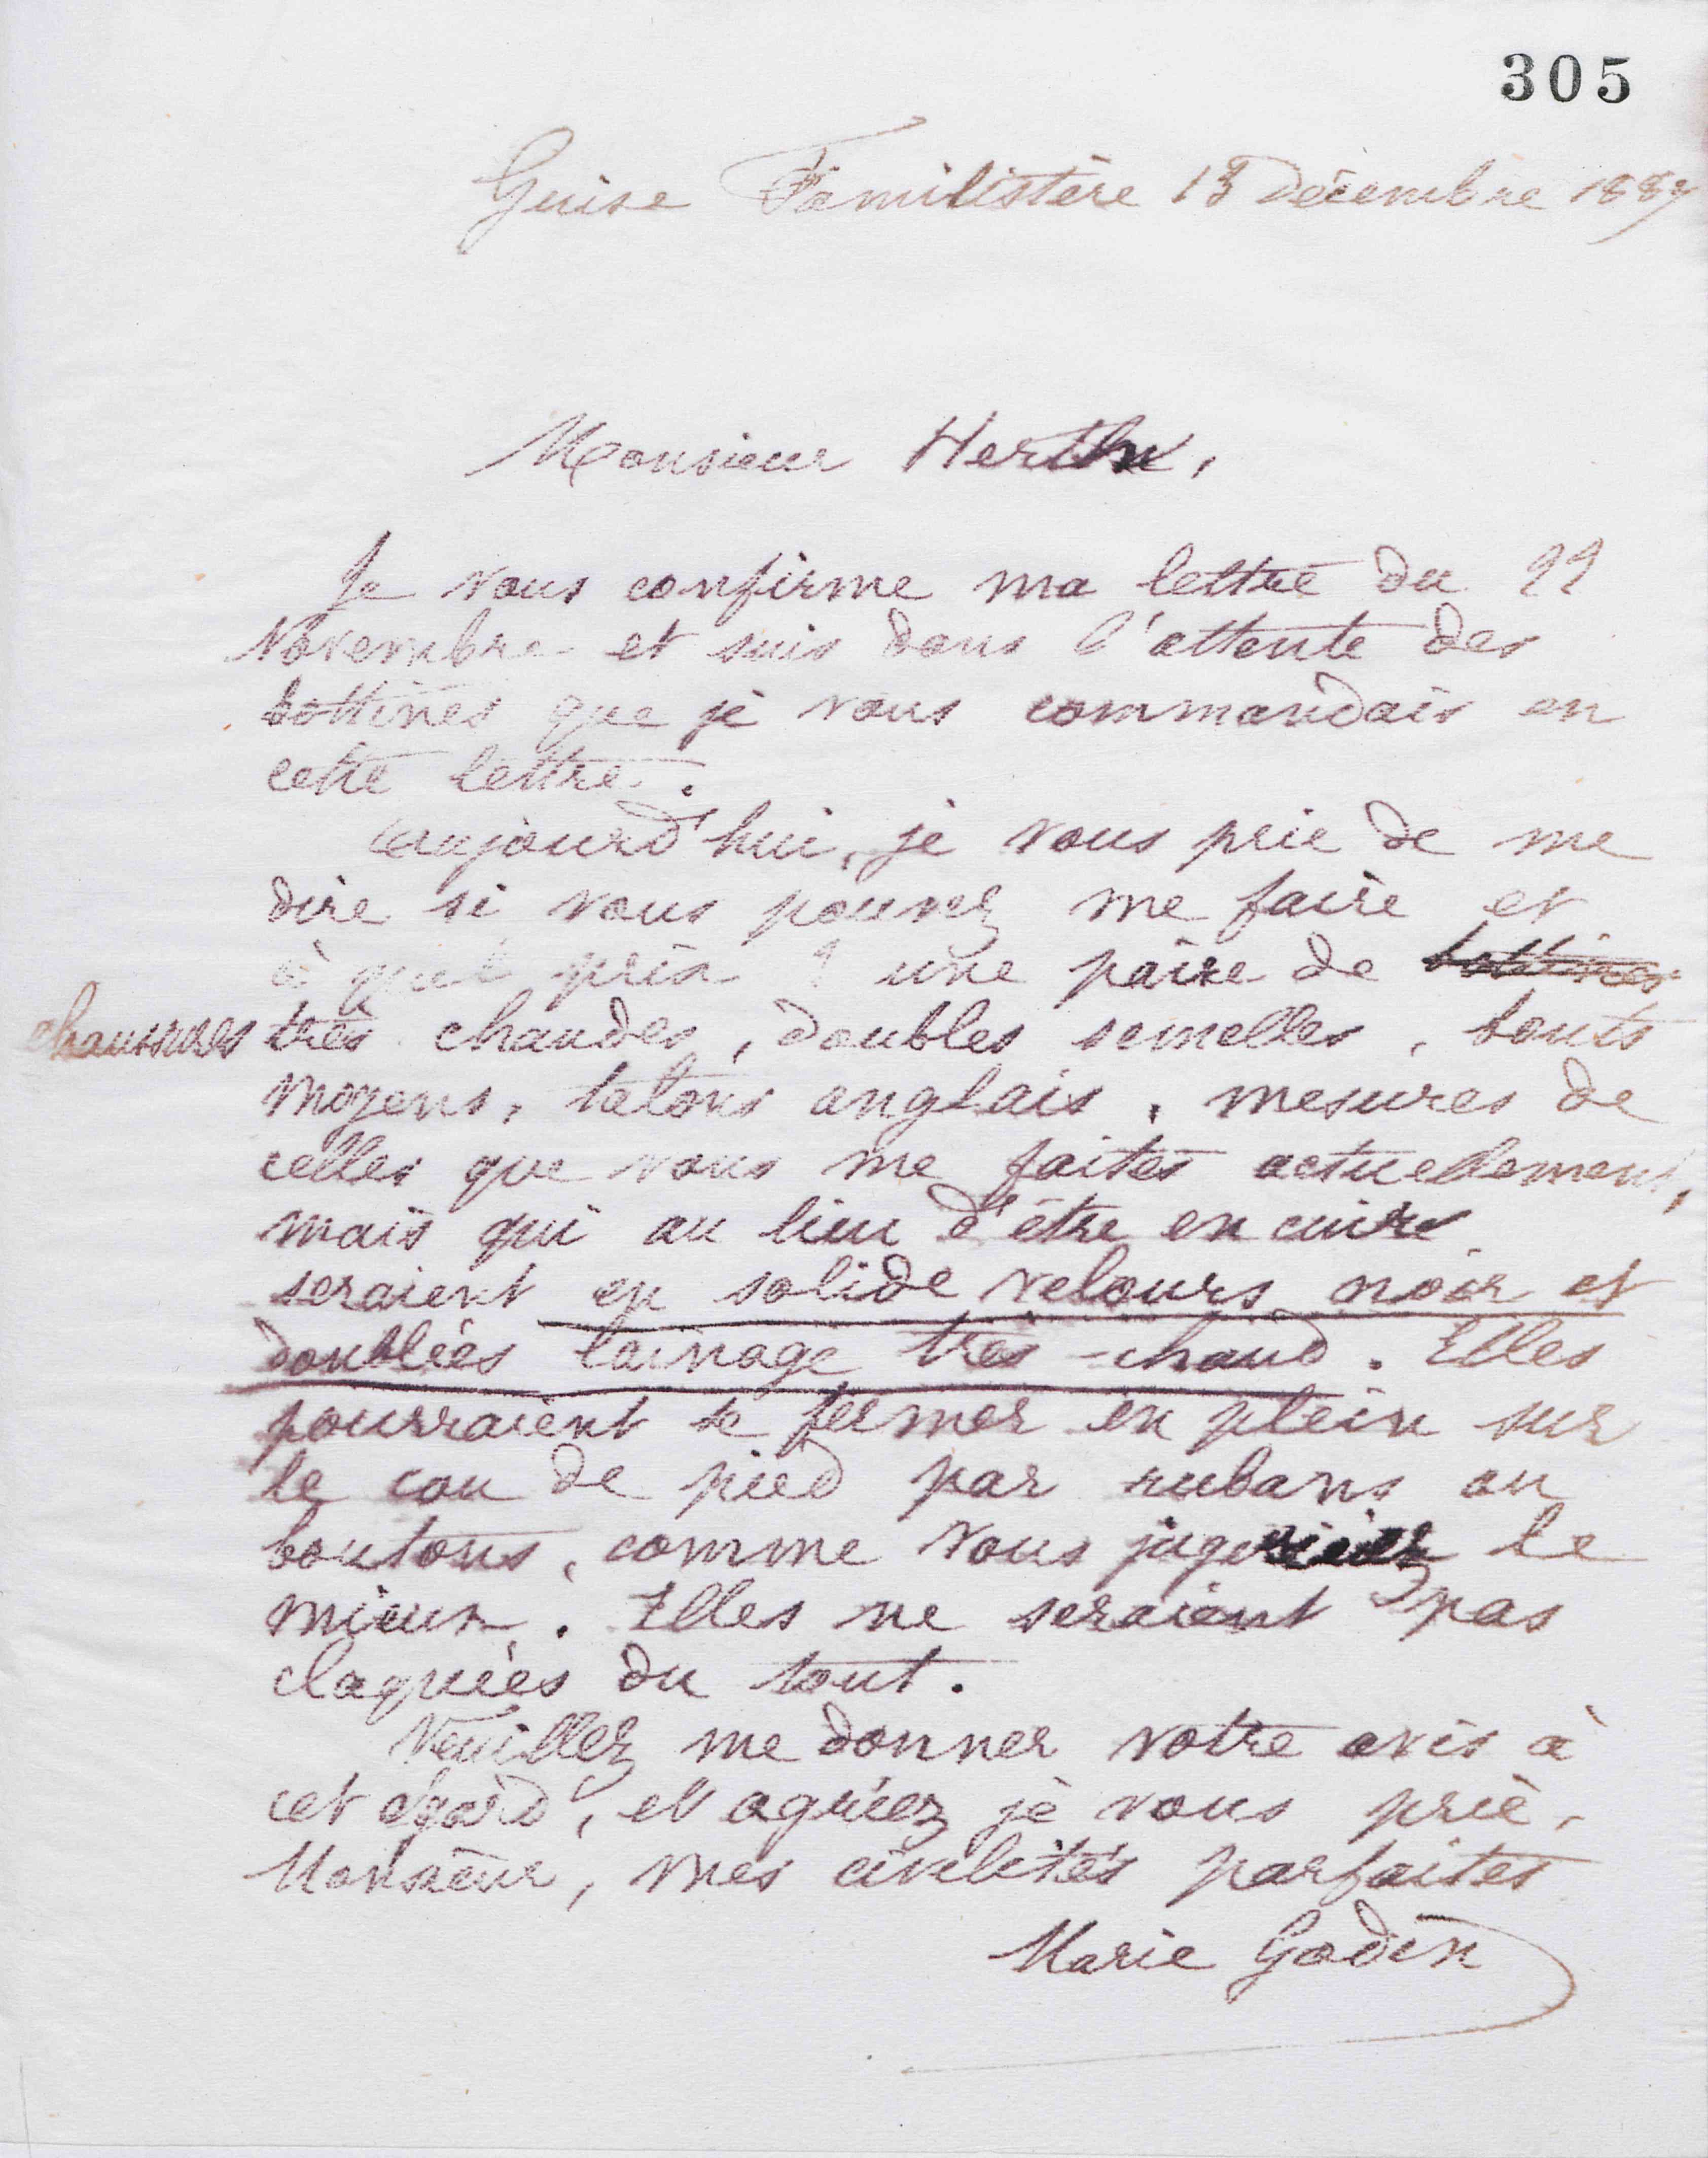 305
Guise Familistère 13 Décembre 1889
Monsieur Herth,
Je vous confirme ma lettre du 22
Novembre et suis dans l'attente des
bottines que je vous commandais en
cette lettre.
Aujourd'hui, je vous prie de me
dire si vous pouvez me faire et
à quel prix ? une paire de bottines
chaussures très chaudes, doubles semelles, bouts
moyens, talons anglais, mesures de
celles que vous me faites actuellement,
mais qui au lieu d'être en cuir
seraient en solide velours noir et
doublées lainage très-chaud. Elles
pourraient se fermer en plein sur
le cou de pied par rubans ou
boutons, comme vous jugeriez le
mieux. Elles ne seraient pas
claquées du tout.
Veuillez me donner votre avis à
cet égard, et agréez je vous prie,
Monsieur, mes civilités parfaites
Marie Godin